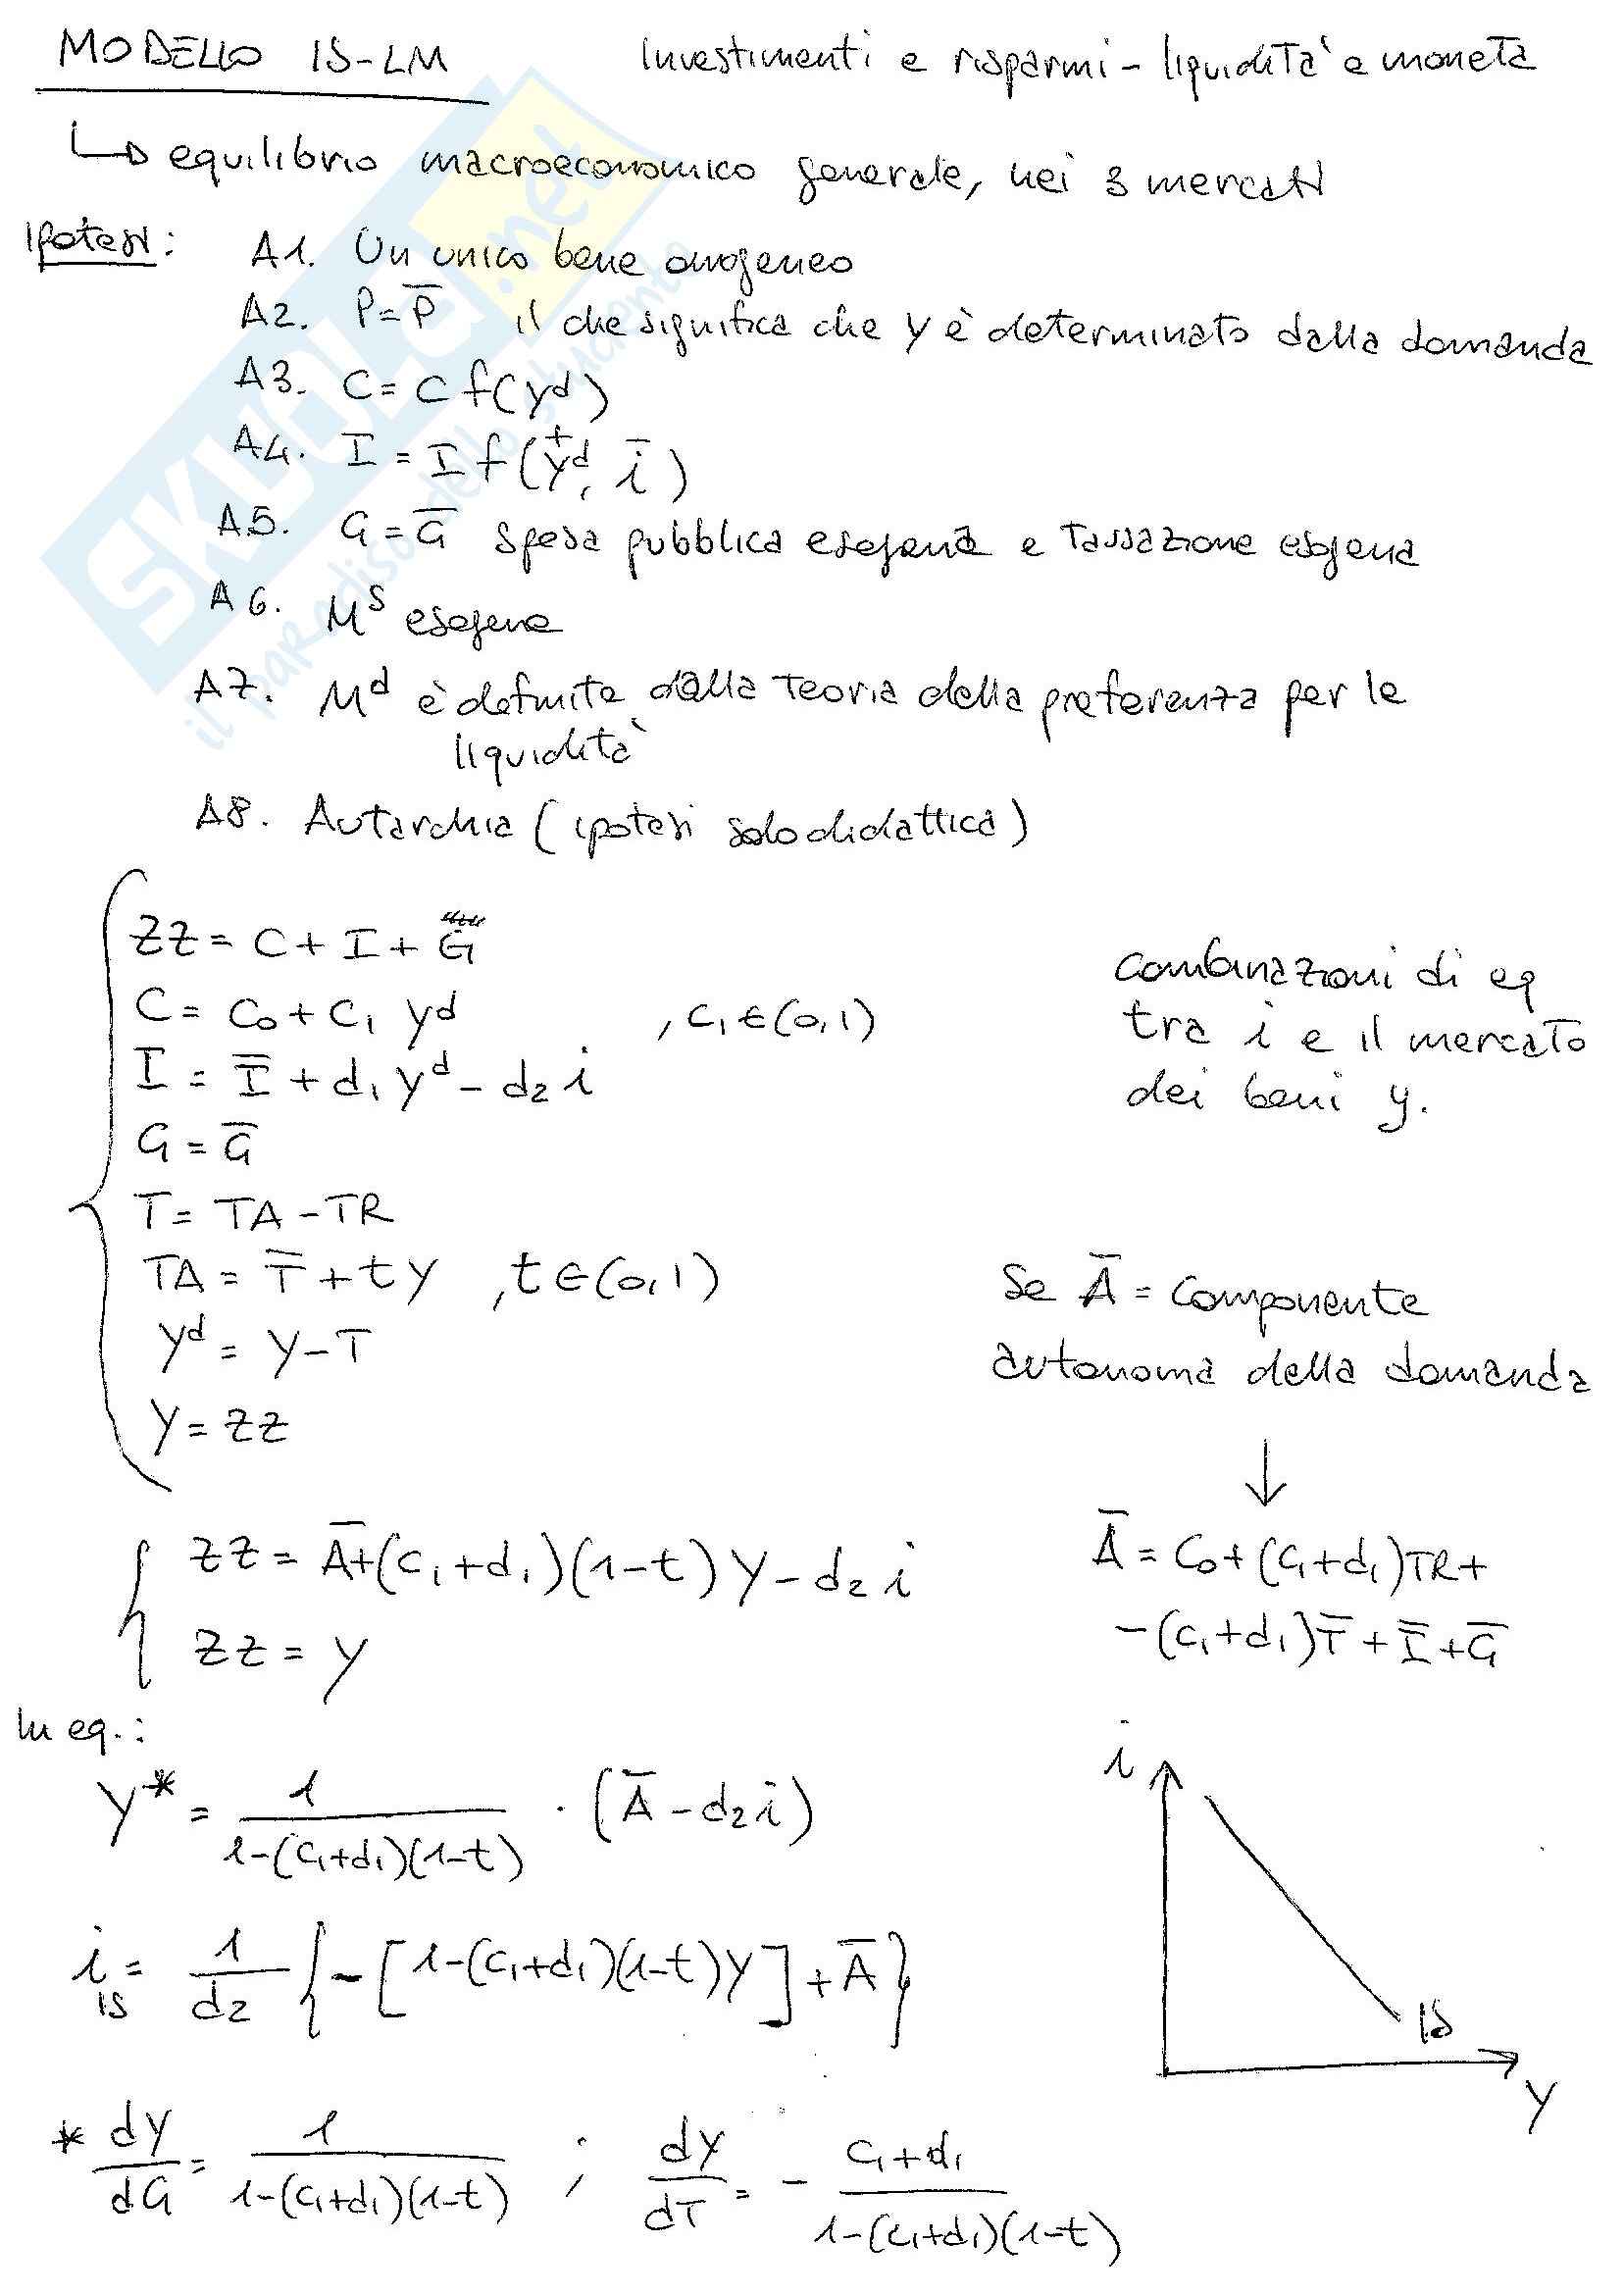 MODELLO IS-LM Investimenti e risparmi - liquidità e moneta
↳ equilibrio macroeconomico generale, nei 3 mercati
Ipotesi: A1. Un unico bene omogeneo
A2. P = P̅ il che significa che Y è determinato dalla domanda
A3. C = C f(Yᵈ)
A4. I = I f(Y⁺ᵈ, i⁻)
A5. G = G̅ spesa pubblica esogena e tassazione esogena
A6. Mˢ esogena
A7. Mᵈ è definita dalla teoria della preferenza per la
liquidità
A8. Autarchia (ipotesi solo didattica)
ZZ = C + I + G
C = C₀ + C₁ Yᵈ , C₁ ∈ (0,1)
I = I̅ + d₁ Yᵈ - d₂ i
G = G̅
T = TA - TR
TA = T̅ + tY , t ∈ (0,1)
Yᵈ = Y - T
Y = ZZ
combinazioni di eq
tra i e il mercato
dei beni y.
Se A̅ = componente
autonoma della domanda
↓
A̅ = C₀ + (C₁+d₁)TR +
-(C₁+d₁)T̅ + I̅ + G̅
ZZ = A̅ + (C₁+d₁)(1-t)Y - d₂ i
ZZ = Y
In eq.:
Y* = 1 / (1-(C₁+d₁)(1-t)) · (A̅ - d₂i)
i_IS = 1/d₂ {-[1-(C₁+d₁)(1-t)Y] + A̅}
i
IS
Y
* dY/dG = 1 / (1-(C₁+d₁)(1-t)) ; dY/dT = - (C₁+d₁) / (1-(C₁+d₁)(1-t))
SKUOLA.net
il paradiso dello studente